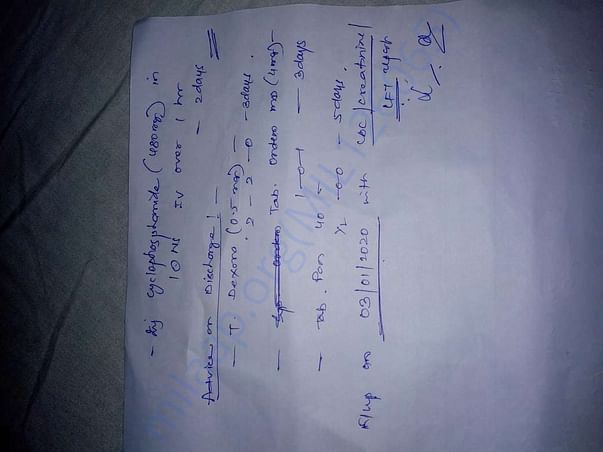 - Inj Cyclophosphamide (480mg) in
10 NS IV over 1 hr
- 2days
Advice on Discharge :-
- T Dexona (0.5 mg) -
2 - 2 - 0 - 3days.
- Tab. Ondem MD (4mg) -
1-0-1 - 3days
- Tab. Pan 40 -
½ -00 - 5days
F/up on 03/01/2020 with CBC/creatinine/
LFT report